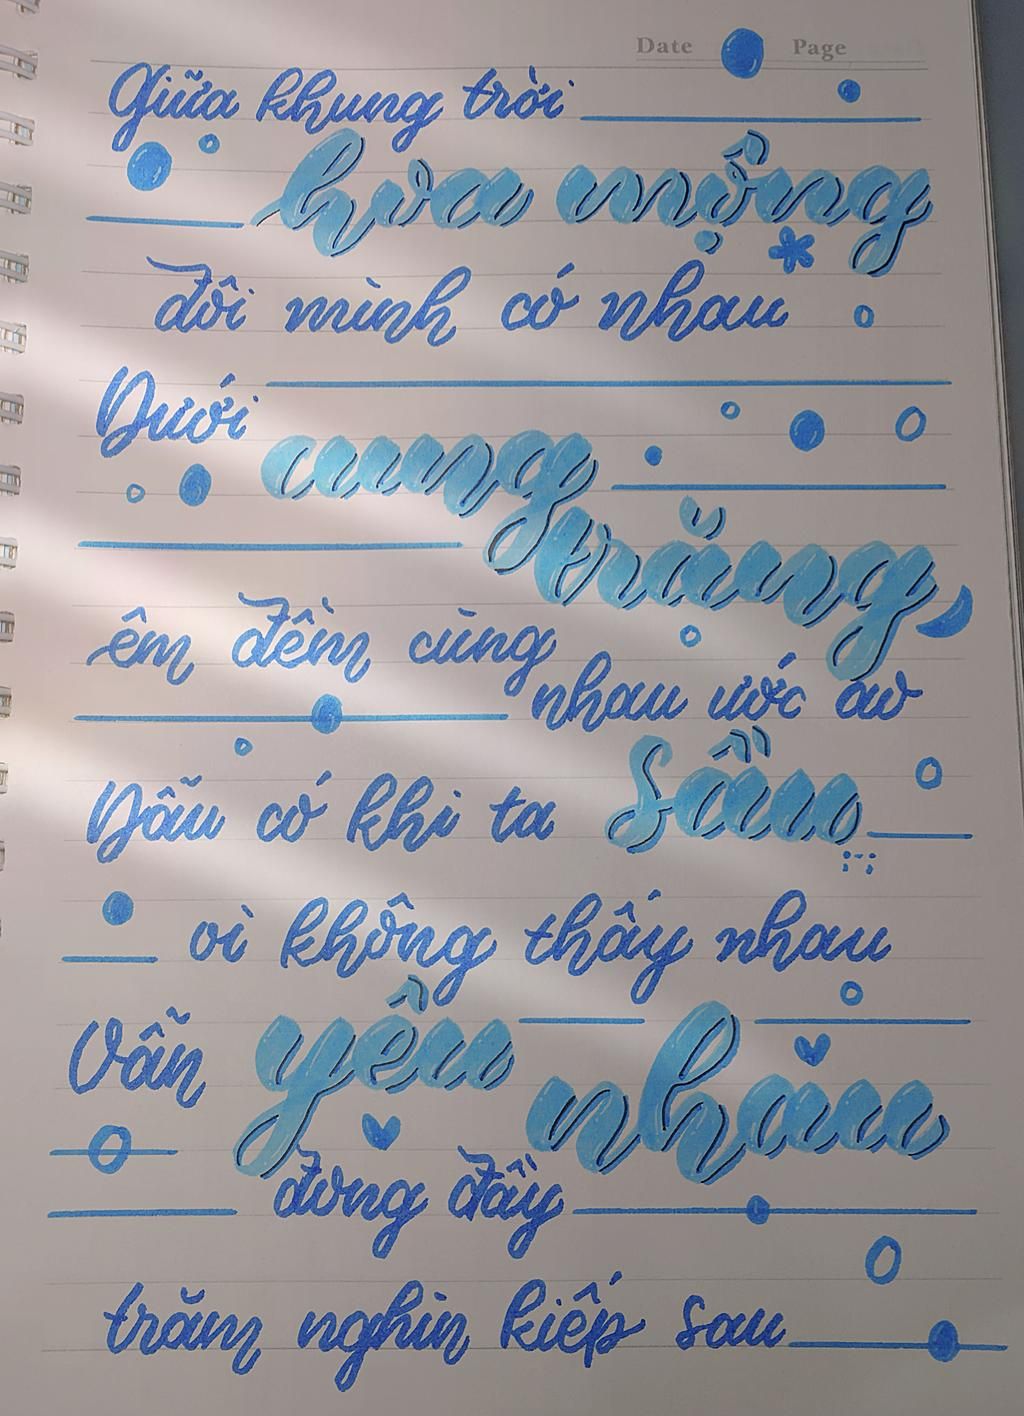 Date Page
Giữa khung trời
hoa mộng
đôi mình có nhau
Dưới
cung
trăng
êm đềm cùng
nhau ước ao
Dẫu có khi ta sầu
vì không thấy nhau
Vẫn yêu
nhau
đong đầy
trăm nghìn kiếp sau